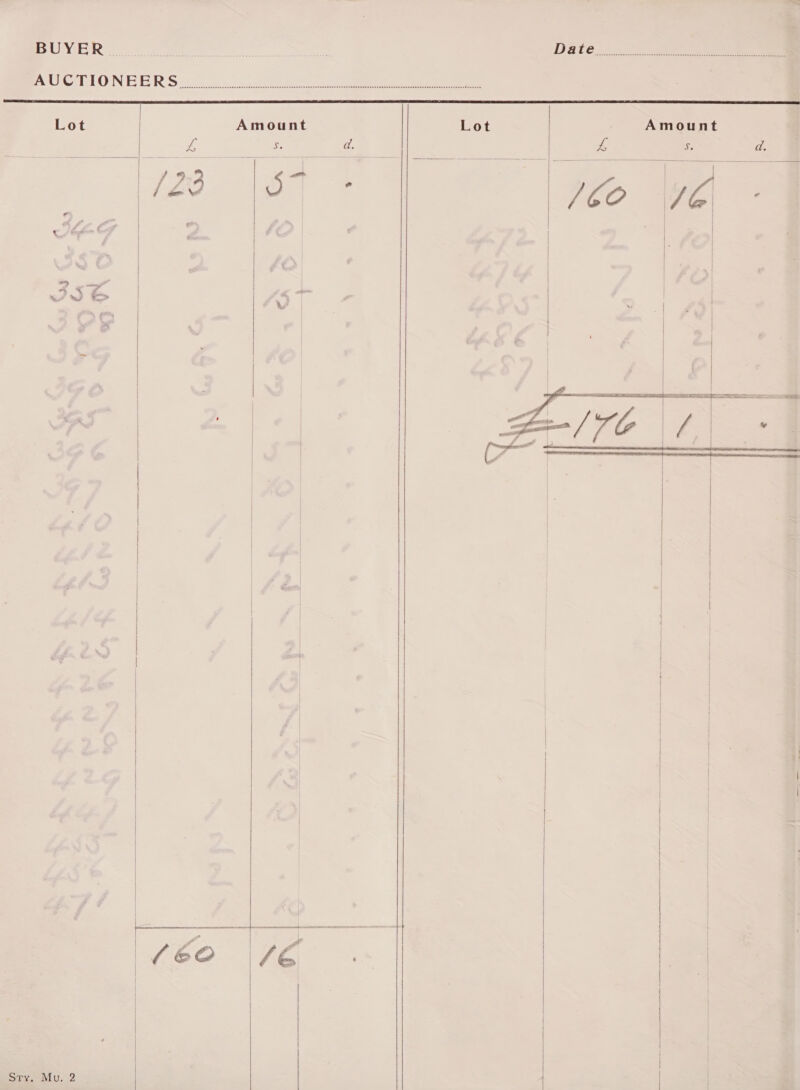 BUYER Date
AUCTIONEERS
Lot Amount
£ s. d.
123 5 -
349 2 10 -
350 2 10 -
356 15 -
388 5 - -
389 6 10 -
390 3 3 -
395 2 - -
396 5 -
397 10 -
410 1 1 -
412 1 4 -
413 12 -
414 1 1 -
425 1 2 -
426 13 -
427 7 -
428 15 -
429 13 -
447 1 10 -
455 2 - -
456 2 - -
471 1 10 -
160 16 -
Lot Amount
£ s. d.
160 16 -
472 2 10 -
474 7 10 -
485 2 15 -
486 1 2 -
487 1 8 -
£176 1 -
Sty. Mu. 2